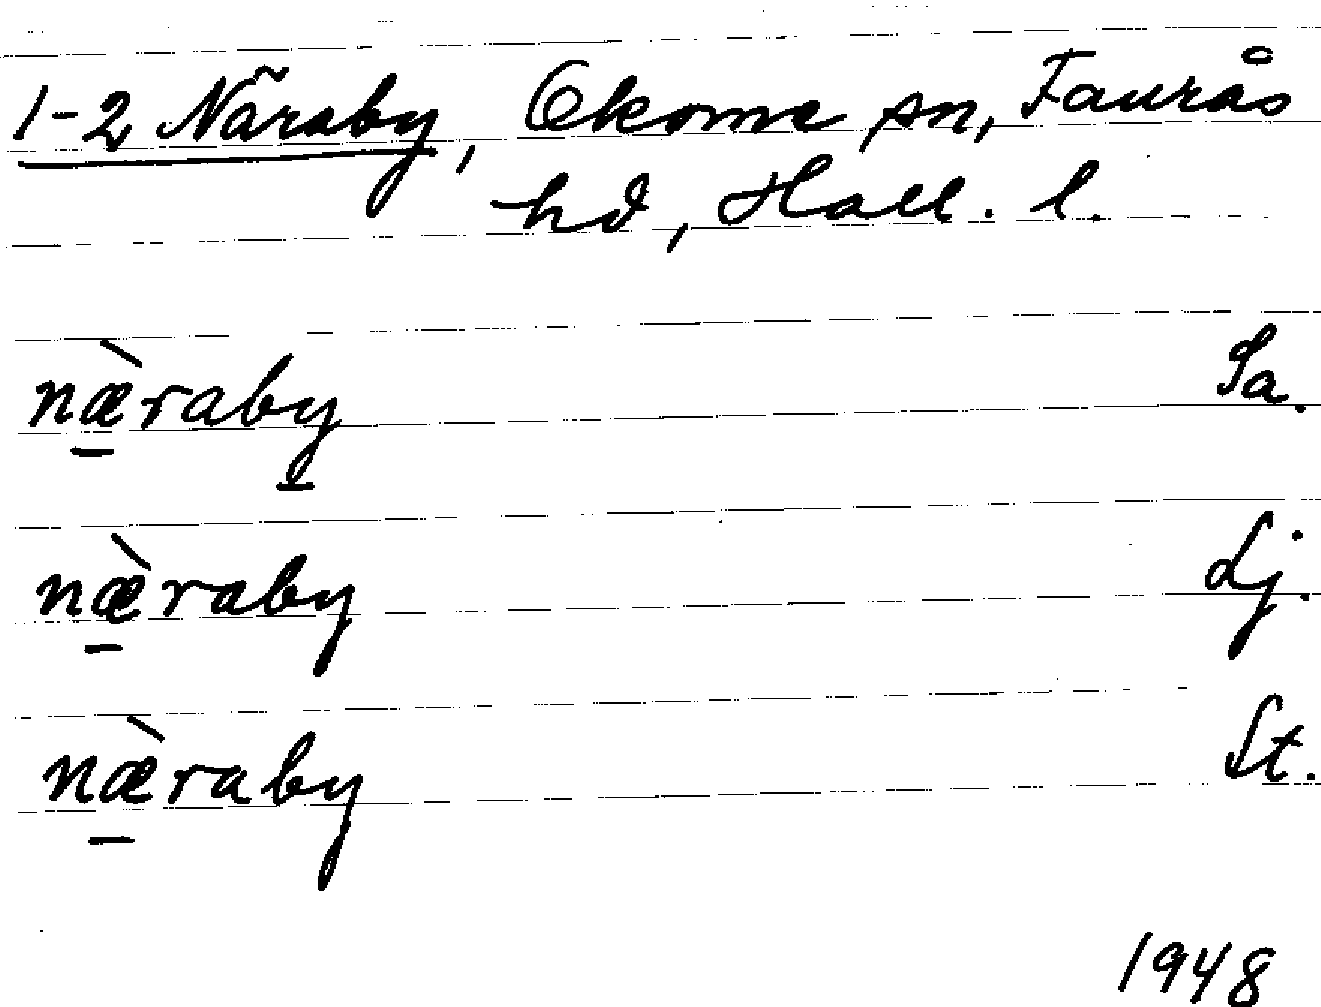 1-2 Näraby, Okome sn, Faurås
hd, Hall. l.
næ̱̀raby̱ Sa.
næ̱̀raby Lj.
næ̱̀raby St.
1948